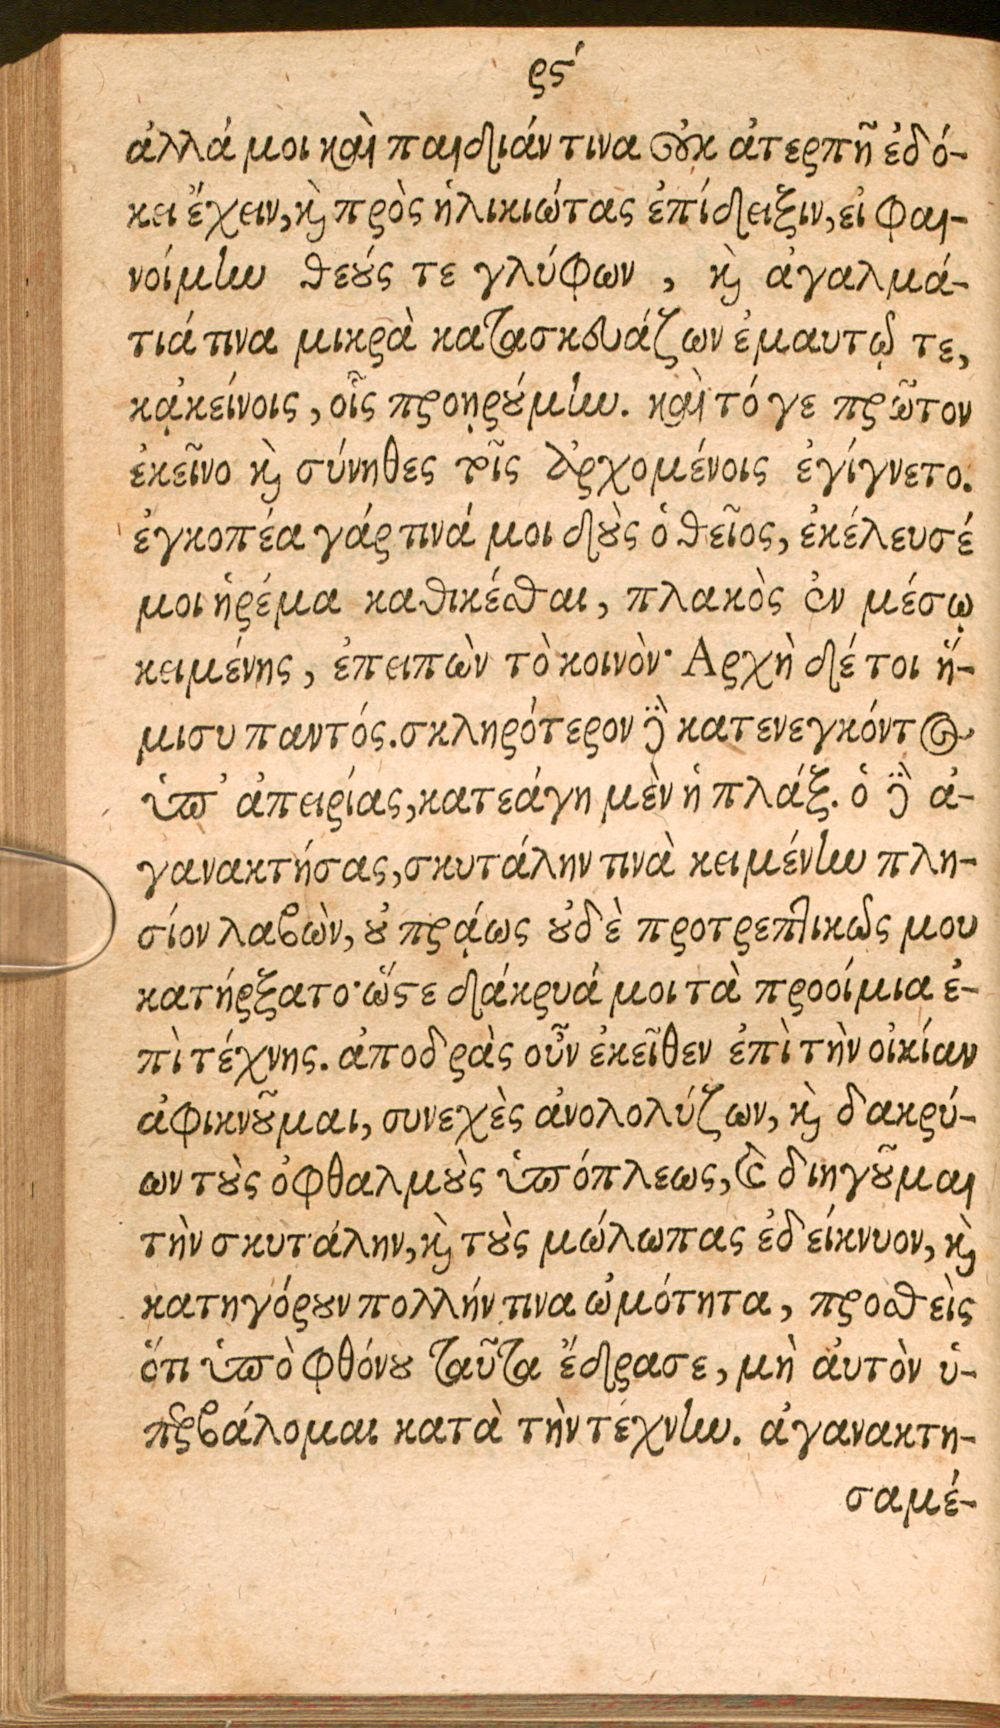 ρϛʹ
ἀλλά μοι καὶ παιδιάν τινα οὐκ ἀτερπῆ ἐδό-
κει ἔχειν, καὶ πρὸς ἡλικιώτας ἐπίδειξιν, εἰ φαι-
νοίμην θεούς τε γλύφων, καὶ ἀγαλμά-
τιά τινα μικρὰ κατασκευάζων ἐμαυτῷ τε,
κᾀκείνοις, οἷς προῃρούμην. καὶ τό γε πρῶτον
ἐκεῖνο καὶ σύνηθες τοῖς ἀρχομένοις ἐγίγνετο.
ἐγκοπέα γάρ τινά μοι δοὺς ὁ θεῖος, ἐκέλευσέ
μοι ἠρέμα καθικέσθαι, πλακὸς ἐν μέσῳ
κειμένης, ἐπειπὼν τὸ κοινὸν· Αρχὴ δέ τοι ἥ-
μισυ παντός. σκληρότερον δὲ κατενεγκόντος
ὑπ᾽ ἀπειρίας, κατεάγη μὲν ἡ πλάξ. ὁ δὲ ἀ-
γανακτήσας, σκυτάλην τινὰ κειμένην πλη-
σίον λαβὼν, οὐ πρᾴως οὐδὲ προτρεπτικῶς μου
κατήρξατο· ὥστε δάκρυά μοι τὰ προοίμια ἐ-
πὶ τέχνης. ἀποδρὰς οὖν ἐκεῖθεν ἐπὶ τὴν οἰκίαν
ἀφικνοῦμαι, συνεχὲς ἀνολολύζων, καὶ δακρύ-
ων τοὺς ὀφθαλμοὺς ὑπόπλεως, καὶ διηγοῦμαι
τὴν σκυτάλην, καὶ τοὺς μώλωπας ἐδείκνυον, καὶ
κατηγόρουν πολλήν τινα ὠμότητα, προσθεὶς
ὅτι ὑπὸ φθόνου ταῦτα ἔδρασε, μὴ αὐτὸν ὑ-
περβάλομαι κατὰ τὴν τέχνην. ἀγανακτη-
σαμέ-